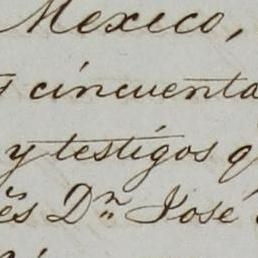 Mexico,
cincuenta
y testigos q
és Dⁿ José